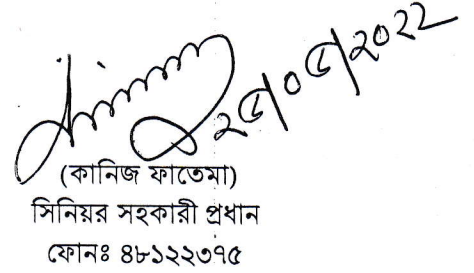 ২৫/০৫/২০২২
(কানিজ ফাতেমা)
সিনিয়র সহকারী প্রধান
ফোনঃ ৪৮১২২৩৭৫